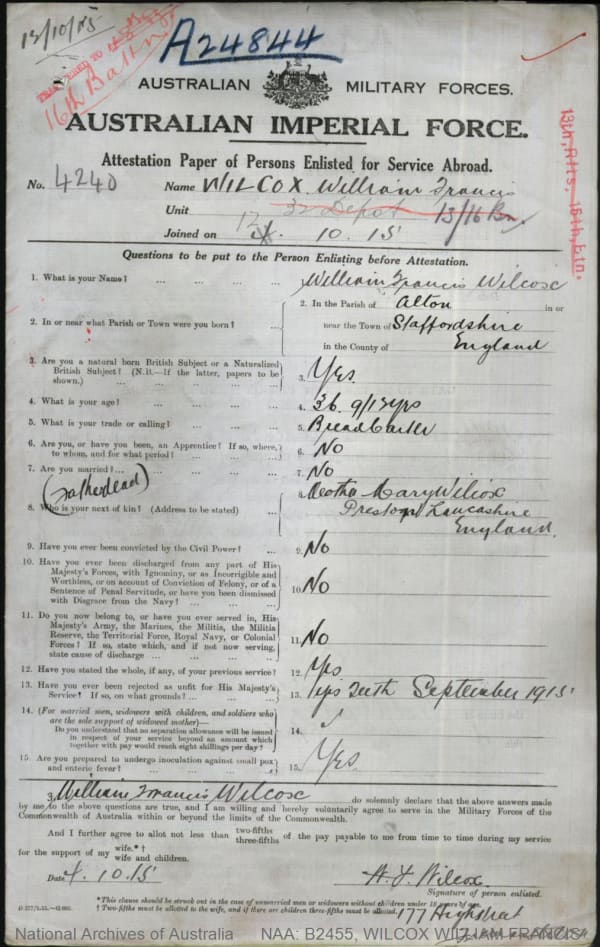 13/10/15
A24844
16th Battn
AUSTRALIAN MILITARY FORCES.
AUSTRALIAN IMPERIAL FORCE.
Attestation Paper of Persons Enlisted for Service Abroad.
No. 4240 Name WILCOX William Francis
Unit 32 Depot 13/16 Bn.
Joined on 10.15
Questions to be put to the Person Enlisting before Attestation.
1. What is your Name? ... ... ... William Francis Wilcox
2. In or near what Parish or Town were you born? ... 2. In the Parish of Alton in or
near the Town of Staffordshire
in the County of England
3. Are you a natural born British Subject or a Naturalized
British Subject? (N.B.—If the latter, papers to be
shown.) ... ... ... ... 3. Yes
4. What is your age? ... ... ... 4. 36 9/12 yrs
5. What is your trade or calling? ... ... 5. Bread Carter
6. Are you, or have you been, an Apprentice? If so, where,
to whom, and for what period? ... ... 6. No
7. Are you married?... ... ... 7. No
(Father dead)
8. Who is your next of kin? (Address to be stated) ... Mary Wilcox
Preston Lancashire
England
9. Have you ever been convicted by the Civil Power? ... 9. No
10. Have you ever been discharged from any part of His
Majesty's Forces, with Ignominy, or as Incorrigible and
Worthless, or on account of Conviction of Felony, or of a
Sentence of Penal Servitude, or have you been dismissed
with Disgrace from the Navy? ... ... 10. No
11. Do you now belong to, or have you ever served in, His
Majesty's Army, the Marines, the Militia, the Militia
Reserve, the Territorial Force, Royal Navy, or Colonial
Forces? If so, state which, and if not now serving,
state cause of discharge ... ... 11. No
12. Have you stated the whole, if any, of your previous service? 12. Yes
13. Have you ever been rejected as unfit for His Majesty's
Service? If so, on what grounds? ... ... 13. September 1915
14. (For married men, widowers with children, and soldiers who
are the sole support of widowed mother)—
Do you understand that no separation allowance will be issued
in respect of your service beyond an amount which
together with pay would reach eight shillings per day? 14.
15. Are you prepared to undergo inoculation against small pox
and enteric fever? ... ... ... 15. Yes
I, William Francis Wilcox do solemnly declare that the above answers made
by me to the above questions are true, and I am willing and hereby voluntarily agree to serve in the Military Forces of the
Commonwealth of Australia within or beyond the limits of the Commonwealth.
And I further agree to allot not less than two-fifths three-fifths of the pay payable to me from time to time during my service
for the support of my wife.*† wife and children.
Date 10.15 W. F. Wilcox
Signature of person enlisted.
*This clause should be struck out in the case of unmarried men or widowers without children under 18 years of age.
† Two-fifths must be allotted to the wife, and if there are children three-fifths must be allotted.
177 High Street
National Archives of Australia NAA: B2455, WILCOX WILLIAM FRANCIS